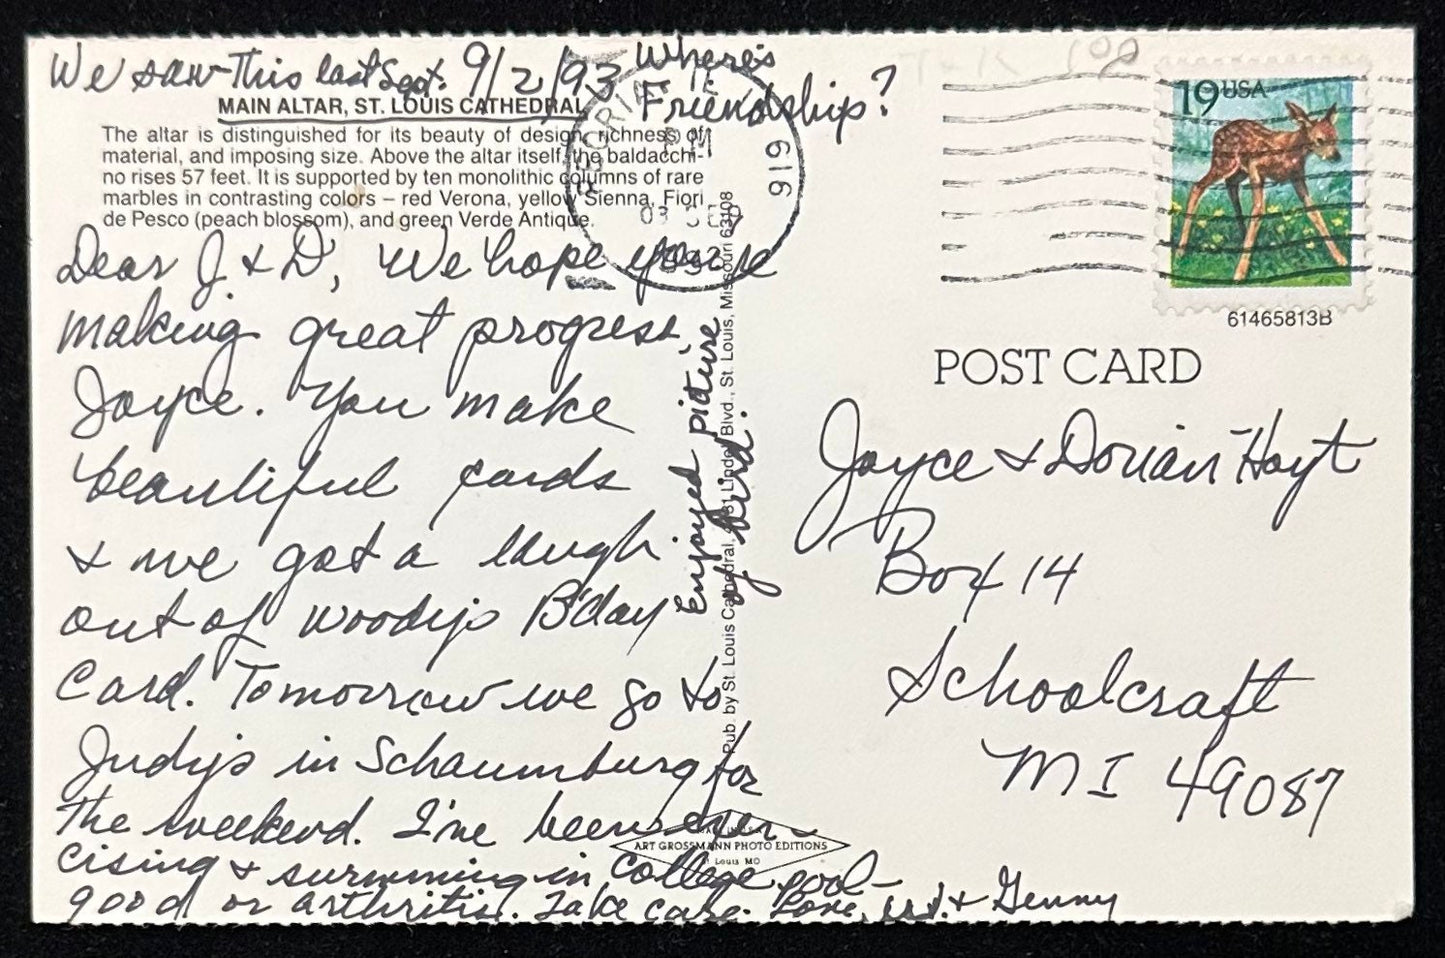 We saw This last Sept. 9/2/93
Where's
Friendship?
MAIN ALTAR, ST. LOUIS CATHEDRAL
The altar is distinguished for its beauty of design, richness of
material, and imposing size. Above the altar itself, the baldacchi-
no rises 57 feet. It is supported by ten monolithic columns of rare
marbles in contrasting colors – red Verona, yellow Sienna, Fiori
de Pesco (peach blossom), and green Verde Antique.
Dear J & D, We hope you're
making great progress,
Joyce. You make
beautiful cards
& we got a laugh
out of Woody's B'day
Card. Tomorrow we go to
Judy's in Schaumburg for
The weekend. I've been exer-
cising & swimming in College pool –
good for arthritis. Take care. Love, & Genny
Enjoyed picture
of bird.
Pub. by St. Louis Cathedral, Lindell Blvd., St. Louis, Missouri 63108
ART GROSSMANN PHOTO EDITIONS
St Louis MO
PEORIA
616
PM
03 SEP
19 USA
61465813B
POST CARD
Joyce & Dorian Hoyt
Box 14
Schoolcraft
MI 49087